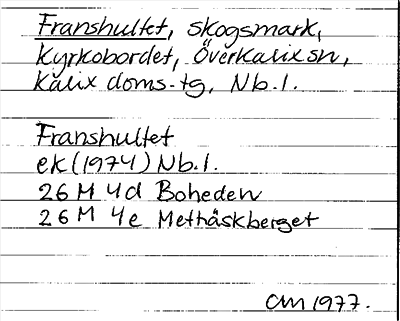 Franshultet, skogsmark,
Kyrkobordet, Överkalix sn,
Kalix doms.tg, Nb.l.
Franshultet
ek (1974) Nb.l.
26 M 4d Boheden
26 M 4e Methåskberget
CM 1977.